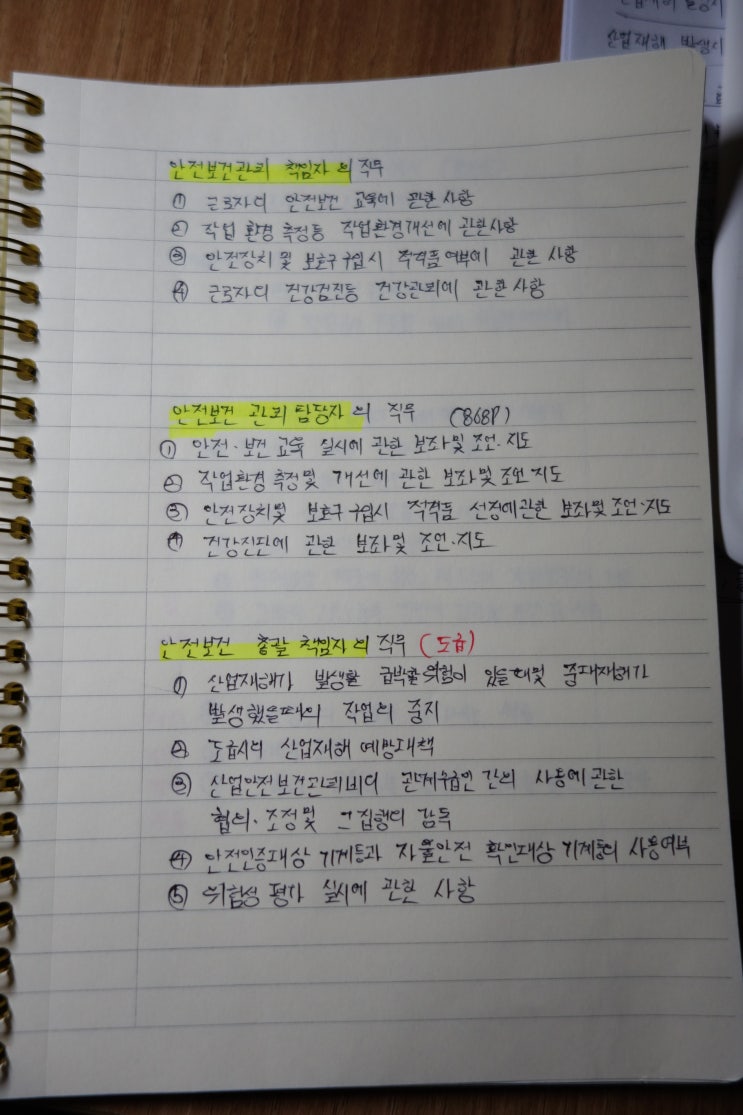 산업재해 발생시
안전보건관리 책임자의 직무
① 근로자의 안전보건 교육에 관한 사항
② 작업 환경 측정등 작업환경개선에 관한사항
③ 안전장치 및 보호구 구입시 적격품 여부에 관한 사항
④ 근로자의 건강검진등 건강관리에 관한 사항
안전보건 관리 담당자의 직무 (868P)
① 안전·보건 교육 실시에 관한 보좌 및 조언·지도
② 작업환경 측정및 개선에 관한 보좌 및 조언·지도
③ 안전장치및 보호구 구입시 적격품 선정에관한 보좌 및 조언·지도
④ 건강진단에 관한 보좌 및 조언·지도
안전보건 총괄 책임자의 직무 (도급)
① 산업재해가 발생할 급박한 위험이 있을때및 중대재해가
발생했을때의 작업의 중지
② 도급시의 산업재해 예방대책
③ 산업안전보건관리비의 관계수급인 간의 사용에 관한
협의·조정및 그 집행의 감독
④ 안전인증대상 기계등과 자율안전 확인대상 기계등의 사용여부
⑤ 위험성 평가 실시에 관한 사항